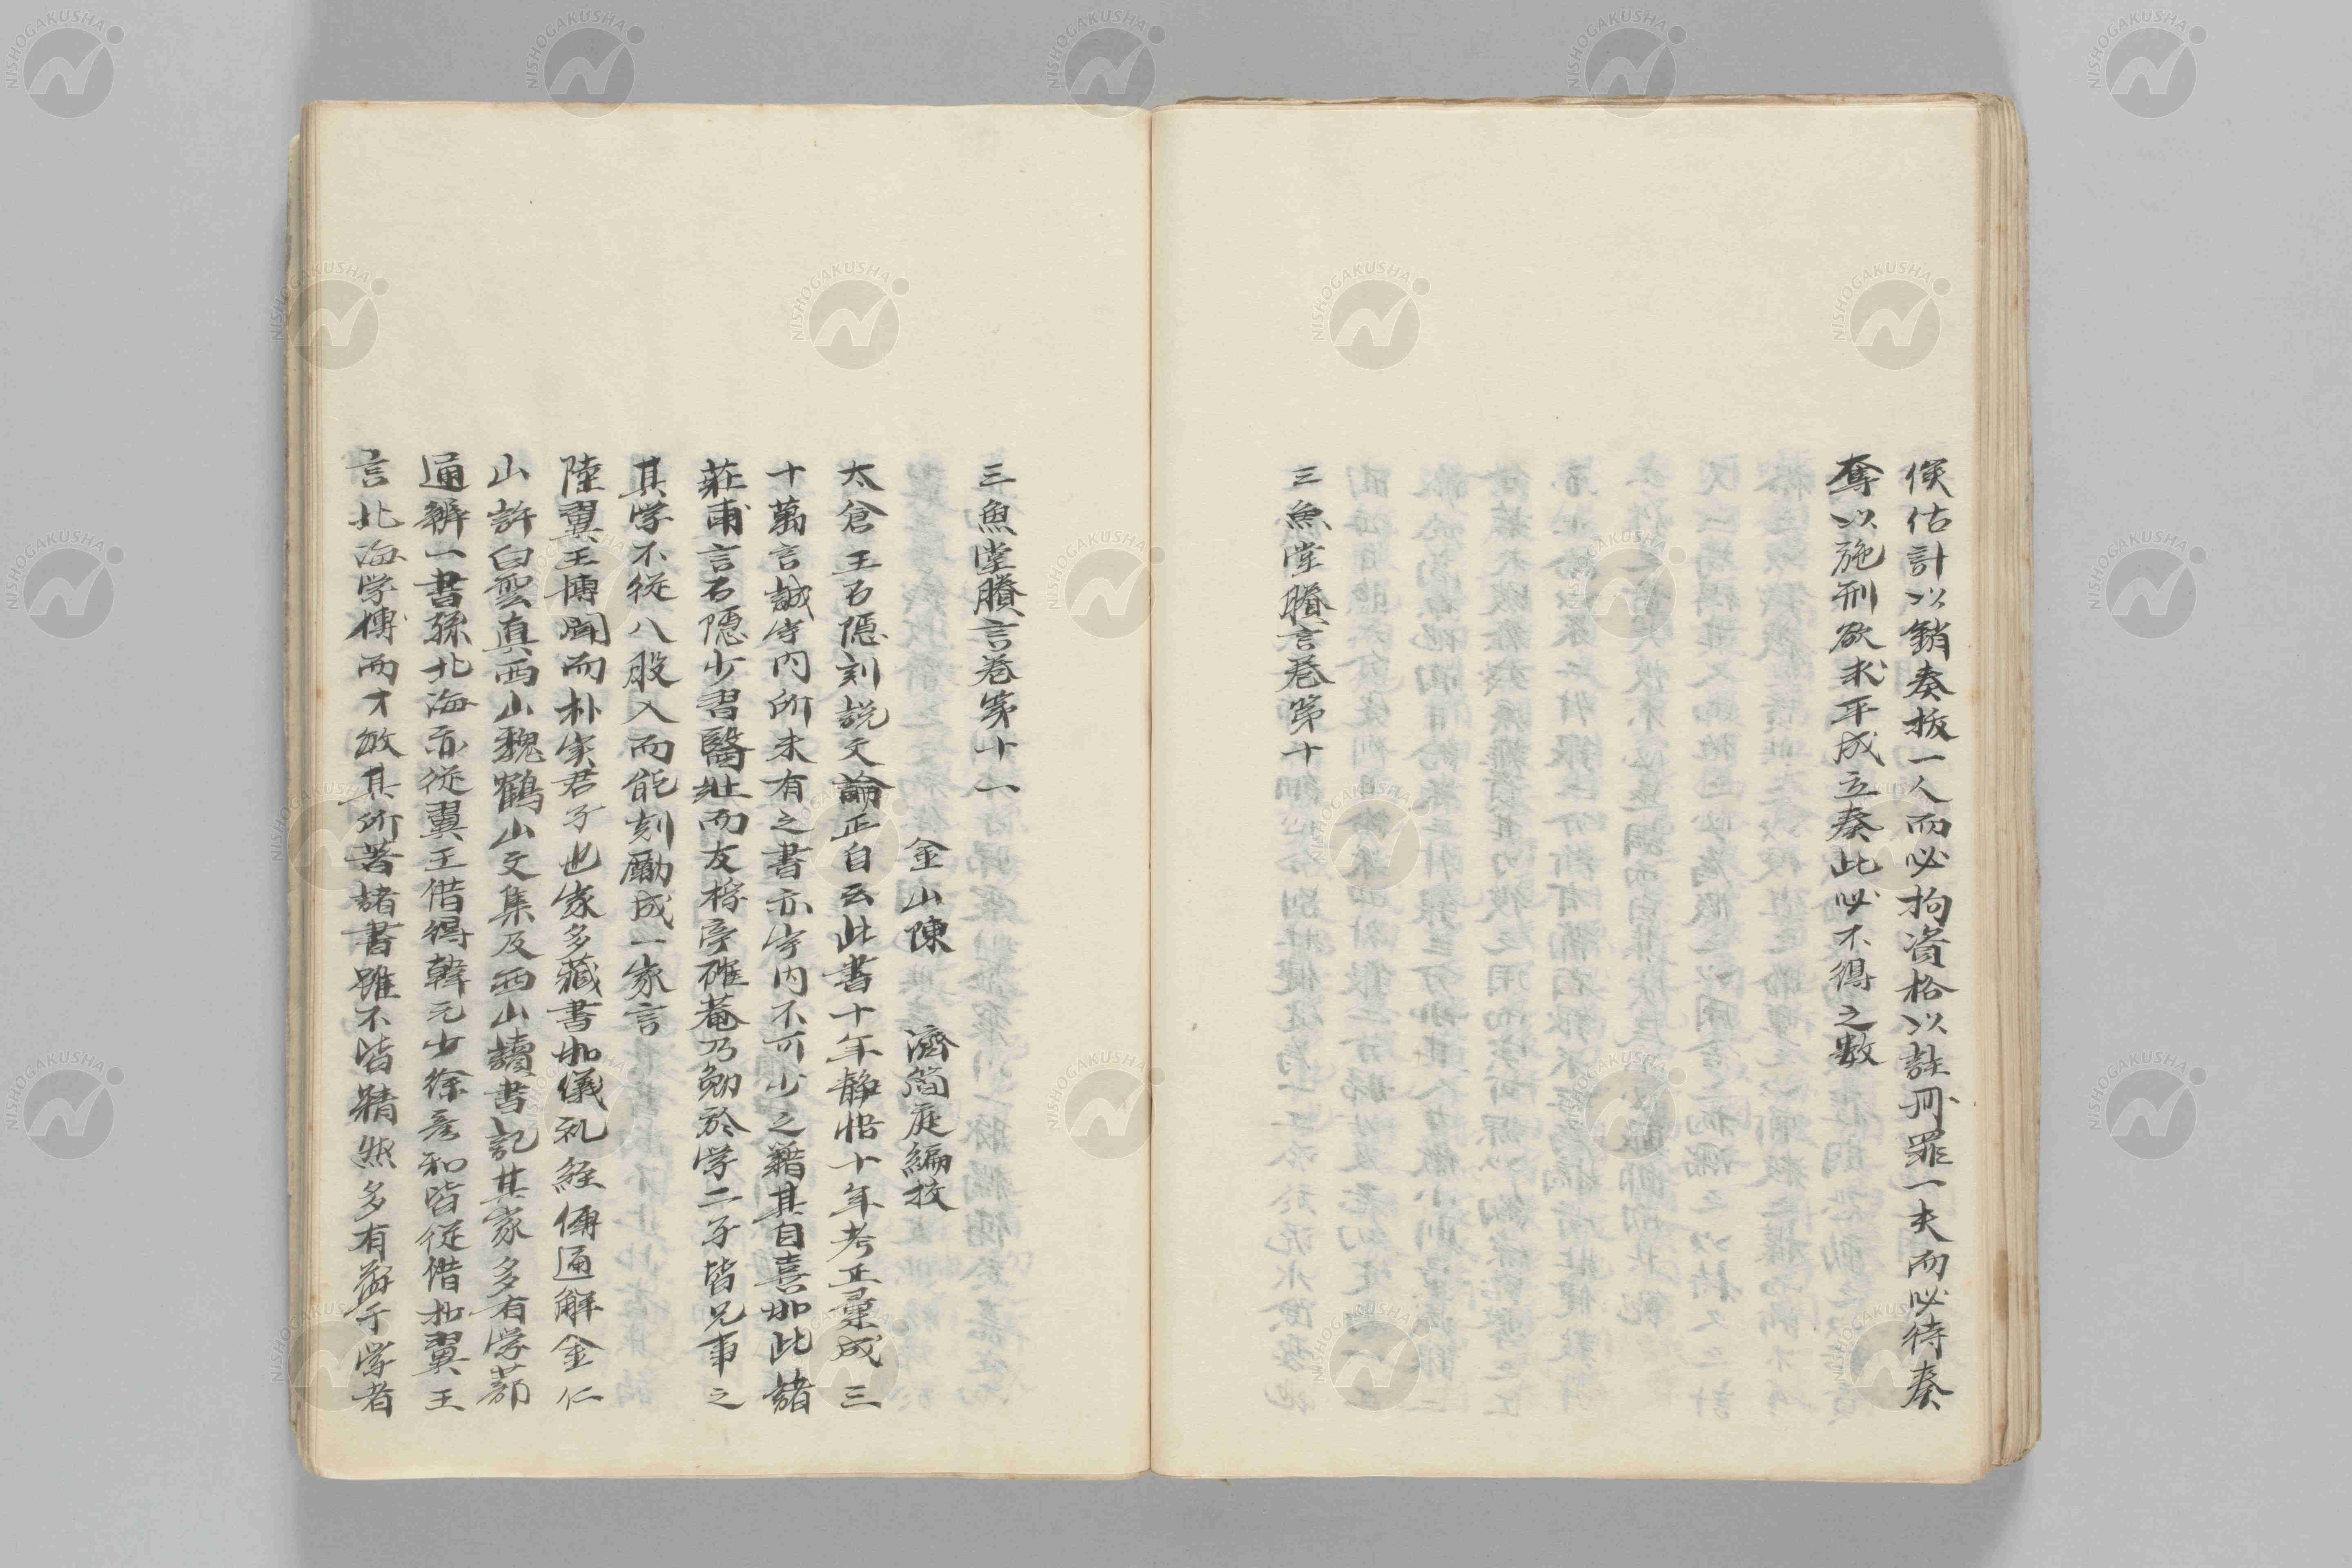 俟估計以銷奏拔一人而必拘資格以註冊罪一夫而必待奏
奪以施刑欲求平成立奏此必不得之数
三魚堂賸言巻第十
三魚堂賸言巻第十一
金山陳 濟簡庭編校
太倉王石隠刻説文論正自云此書十年静悟十年考正彙成三
十萬言誠宇内所未有之書亦宇内不可少之籍其自喜如此諸
莊甫言石隠少習醫壮而友桴亭確菴乃勉於学二子皆兄事之
其学不從八股入而能刻勵成一家言
陸翼王博聞而朴実君子也家多藏書如儀礼經傳通解金仁
山許白雲真西山魏鶴山文集及西山讀書記其家多有学蔀
通辨一書孫北海亦從翼王借得韓元少徐彦和皆從借抄翼王
言北海学博而才敏其所著諸書雖不皆精然多有益于学者